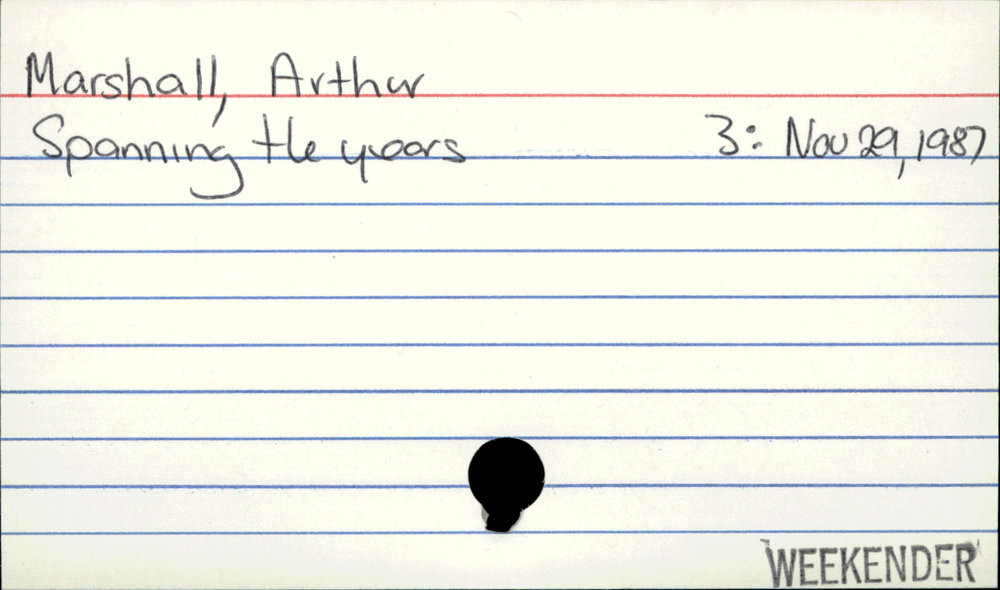 Marshall, Arthur
Spanning the years 3: Nov 29, 1987
WEEKENDER